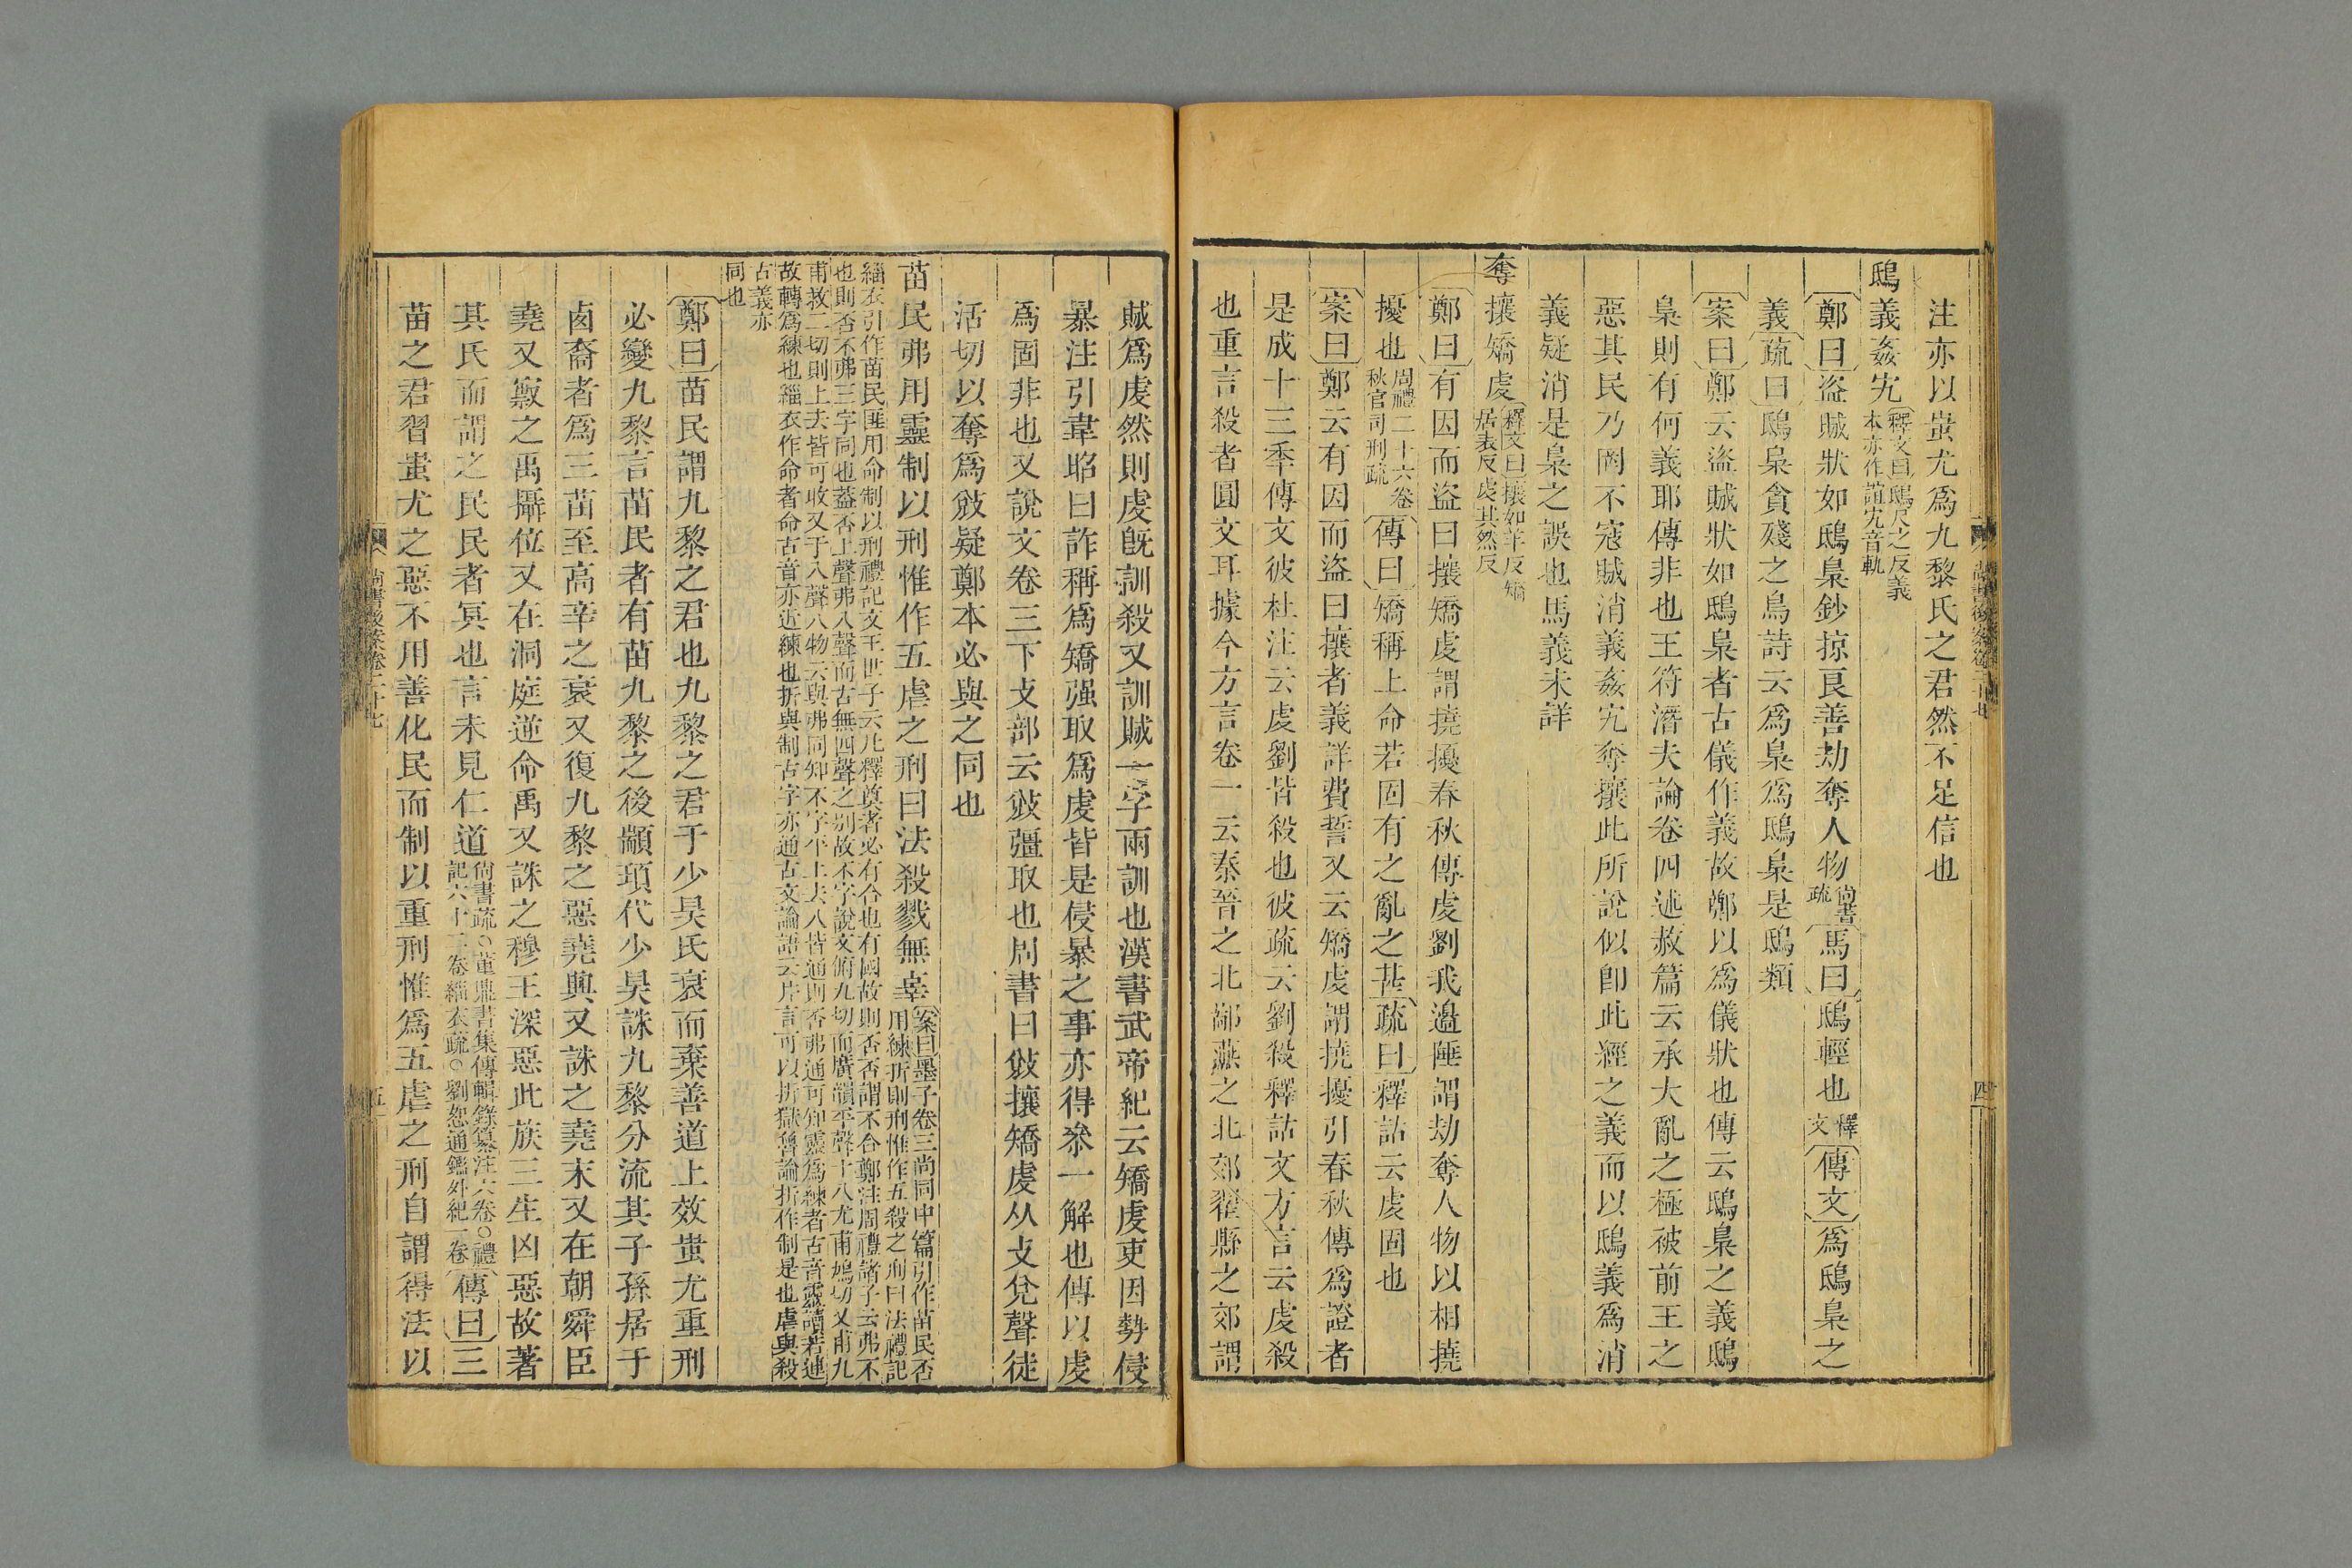 注亦以蚩尤爲九黎氏之君然不足信也
鴟義姦宄釋文曰鴟尺之反義本亦作誼宄音軌
鄭曰盜賊狀如鴟梟鈔掠良善劫奪人物尙書疏馬曰鴟輕也釋文傳文爲鴟梟之
義疏曰鴟梟貪殘之鳥詩云爲梟爲鴟梟是鴟類
案曰鄭云盜賊狀如鴟梟者古儀作義故鄭以爲儀狀也傳云鴟梟之義鴟
梟則有何義耶傳非也王符潛夫論卷四述赦篇云承大亂之極被前王之
惡其民乃罔不寇賊消義姦宄奪攘此所說似卽此經之義而以鴟義爲消
義疑消是梟之誤也馬義未詳
奪攘矯虔釋文曰攘如羊反矯居表反虔其然反
鄭曰有因而盜曰攘矯虔謂撓擾春秋傳虔劉我邊陲謂劫奪人物以相撓
擾也周禮二十六卷秋官司刑疏傳曰矯稱上命若固有之亂之甚疏曰釋詁云虔固也
案曰鄭云有因而盜曰攘者義詳費誓又云矯虔謂撓擾引春秋傳爲證者
是成十三秊傳文彼杜注云虔劉皆殺也彼疏云劉殺釋詁文方言云虔殺
也重言殺者圓文耳據今方言卷一云秦晉之北鄙燕之北郊翟縣之郊謂
尙書後案卷二十七
四
賊爲虔然則虔旣訓殺又訓賊一字兩訓也漢書武帝紀云矯虔吏因勢侵
暴注引韋昭曰詐稱爲矯强取爲虔皆是侵暴之事亦得叅一解也傳以虔
爲固非也又說文卷三下攴部云敓彊取也周書曰敓攘矯虔从攴兌聲徒
活切以奪爲敓疑鄭本必與之同也
苗民弗用靈制以刑惟作五虐之刑曰法殺戮無辜案曰墨子卷三尚同中篇引作苗民否用練折則刑惟作五殺之刑曰法禮記
緇衣引作苗民匪用命制以刑禮記文王世子云凡釋奠者必有合也有國故則否否謂不合鄭注周禮諸子云弗不
也則否不弗三字同也蓋否上聲弗入聲而古無四聲之別故不字說文俯九切而廣韻平聲十八尤甫鳩切又甫九
甫救二切則上去皆可收又于入聲八物云與弗同知不字平上去入皆通則否弗通可知靈爲練者古音靈讀若連
故轉爲練也緇衣作命者命古音亦近練也折與制古字亦通古文論語云片言可以折獄魯論折作制是也虐與殺
古義亦
同也
鄭曰苗民謂九黎之君也九黎之君于少昊氏衰而棄善道上效蚩尤重刑
必變九黎言苗民者有苗九黎之後顓頊代少昊誅九黎分流其子孫居于
鹵裔者爲三苗至高辛之衰又復九黎之惡堯興又誅之堯末又在朝舜臣
堯又竄之禹攝位又在洞庭逆命禹又誅之穆王深惡此族三生凶惡故著
其氏而謂之民民者冥也言未見仁道尙書疏○董鼎書集傳輯錄纂注六卷○禮記六十二卷緇衣疏○劉恕通鑑外紀一卷傳曰三
苗之君習蚩尤之惡不用善化民而制以重刑惟爲五虐之刑自謂得法以
尙書後案卷二十七
五